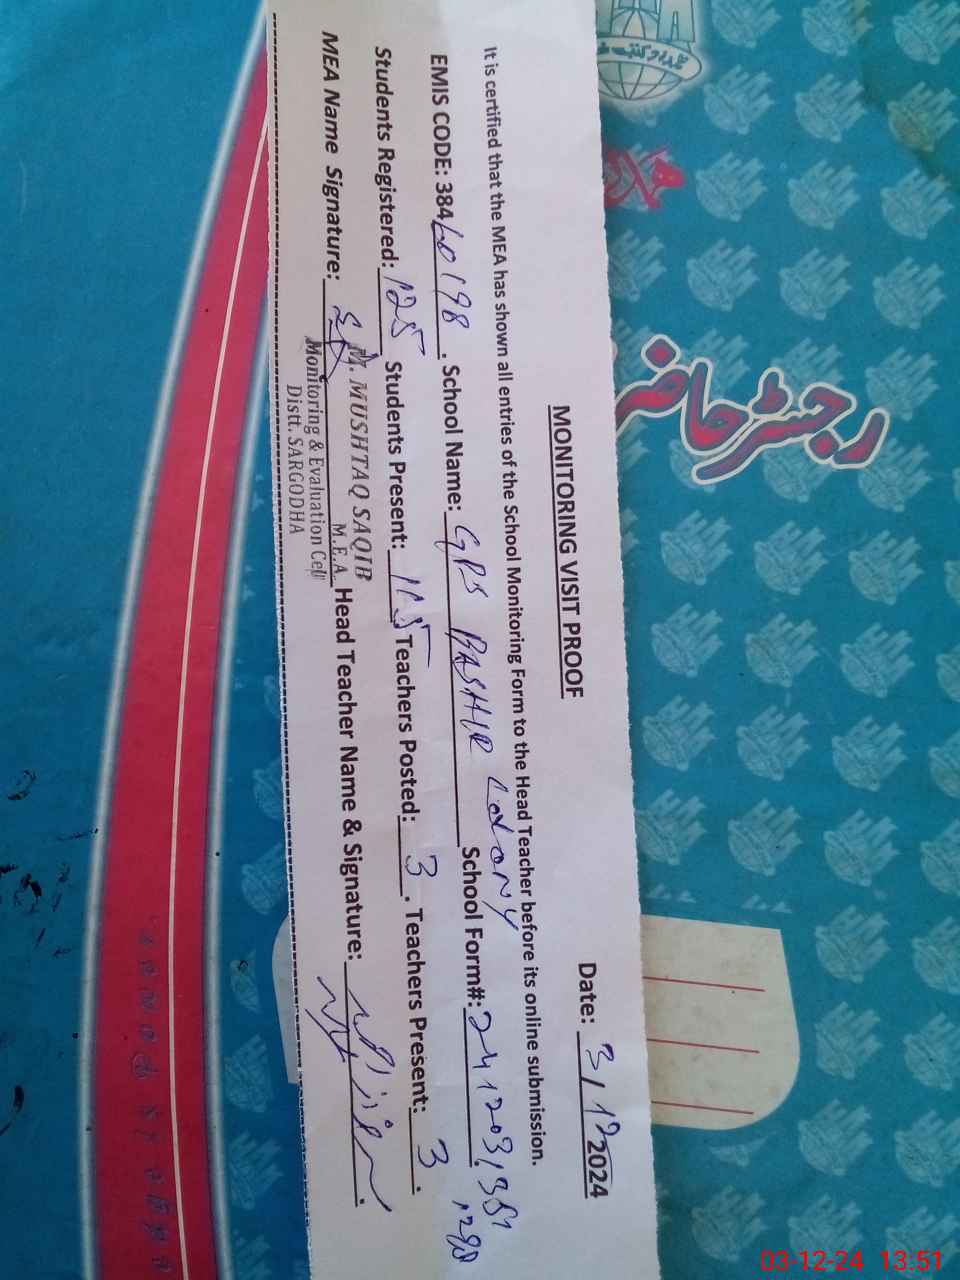 MONITORING VISIT PROOF
Date: 3/12 2024
It is certified that the MEA has shown all entries of the School Monitoring Form to the Head Teacher before its online submission.
EMIS CODE: 38460198. School Name: GPS BASHIR COLONY School Form#: 241203
Students Registered: 125 Students Present: 115 Teachers Posted: 3. Teachers Present: 3.
MEA Name Signature: Head Teacher Name & Signature:
M. MUSHTAQ SAQIB
M.E.A.
Monitoring & Evaluation Cell
Distt. SARGODHA
رجسٹر حاضری
03-12-24 13:51